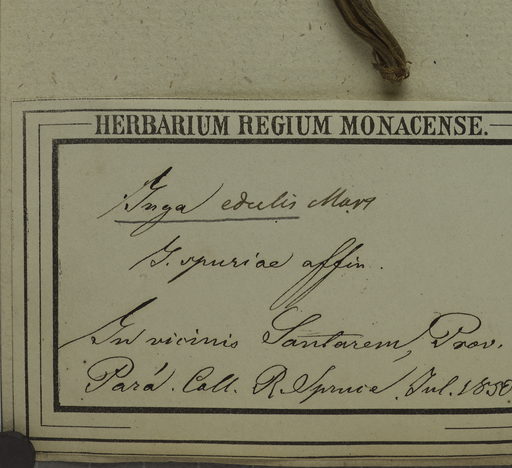 HERBARIUM REGIUM MONACENSE.
Inga edulis Mart
I. spuriae affin.
In vicinis Santarem, Prov.
Pará. Coll. R. Spruce Jul. 1850